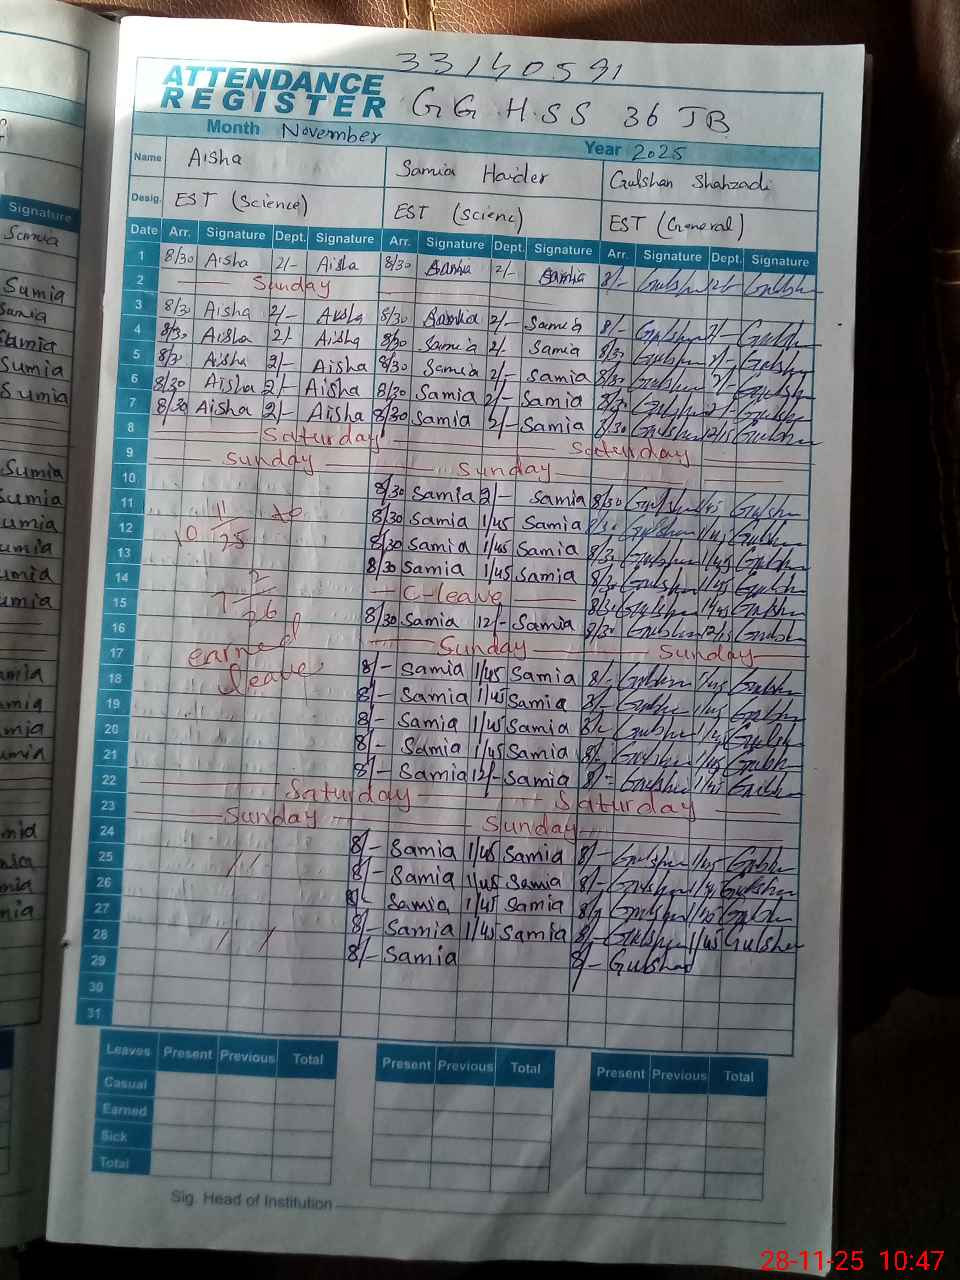 33140591
ATTENDANCE REGISTER GGHSS 36 JB
Month November Year 2025
Name Aisha Samia Haider Gulshan Shahzadi
Desig. EST (Science) EST (Scienc) EST (General)
Date Arr. Signature Dept. Signature Arr. Signature Dept. Signature Arr. Signature Dept. Signature
1 8/30 Aisha 2/- Aisha 8/30 Samia 2/- Samia 8/- Gulshan 2/- Gulshan
2 Sunday
3 8/30 Aisha 2/- Aisha 8/30 Samia 2/- Samia 8/- Gulshan 2/- Gulshan
4 8/30 Aisha 2/ Aisha 8/30 Samia 2/- Samia 8/30 Gulshan 2/- Gulshan
5 8/30 Aisha 2/- Aisha 8/30 Samia 2/- Samia 8/30 Gulshan 2/- Gulshan
6 8/30 Aisha 2/- Aisha 8/30 Samia 2/- Samia 8/30 Gulshan 2/- Gulshan
7 8/30 Aisha 2/- Aisha 8/30 Samia 2/- Samia 8/30 Gulshan 12/15 Gulshan
8 Saturday Saturday
9 Sunday Sunday
10 8/30 Samia 2/- Samia 8/30 Gulshan 1/45 Gulshan
11 10 11/25 to 8/30 Samia 1/45 Samia 8/30 Gulshan 1/45 Gulshan
12 8/30 Samia 1/45 Samia 8/30 Gulshan 1/45 Gulshan
13 8/30 Samia 1/45 Samia 8/30 Gulshan 1/45 Gulshan
14 7 2/26 C-leave 8/30 Gulshan 1/45 Gulshan
15 8/30 Samia 12/- Samia 8/30 Gulshan 12/15 Gulshan
16 earned Sunday Sunday
17 leave 8/- Samia 1/45 Samia 8/- Gulshan 1/45 Gulshan
18 8/- Samia 1/45 Samia 8/- Gulshan 1/45 Gulshan
19 8/- Samia 1/45 Samia 8/- Gulshan 1/45 Gulshan
20 8/- Samia 1/45 Samia 8/- Gulshan 1/45 Gulshan
21 8/- Samia 12/- Samia 8/- Gulshan 1/45 Gulshan
22 Saturday Saturday
23 Sunday Sunday
24 8/- Samia 1/45 Samia 8/- Gulshan 1/45 Gulshan
25 8/- Samia 1/45 Samia 8/- Gulshan 1/45 Gulshan
26 8/- Samia 1/45 Samia 8/- Gulshan 1/45 Gulshan
27 8/- Samia 1/45 Samia 8/- Gulshan 1/45 Gulshan
28 8/- Samia 8/- Gulshan
29
30
31
Leaves Present Previous Total Present Previous Total Present Previous Total
Casual
Earned
Sick
Total
Sig. Head of Institution
28-11-25 10:47